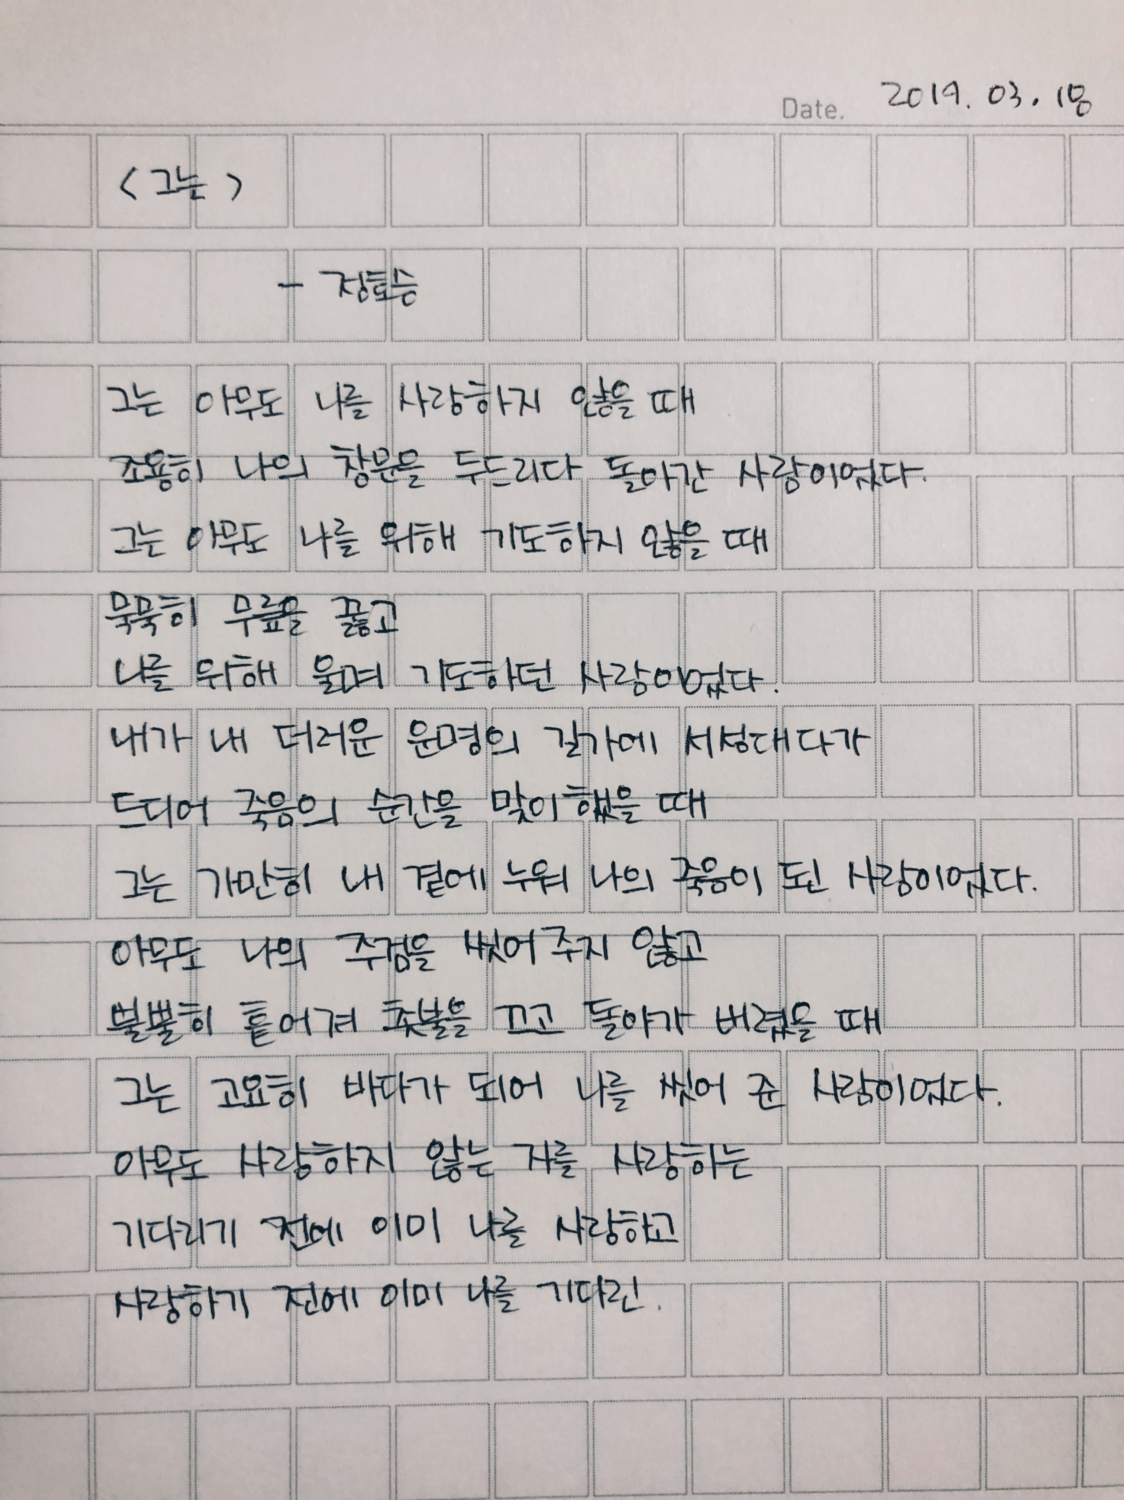 Date. 2019. 03. 18
<그는>
- 정호승
그는 아무도 나를 사랑하지 않을 때
조용히 나의 창문을 두드리다 돌아간 사람이었다.
그는 아무도 나를 위해 기도하지 않을 때
묵묵히 무릎을 꿇고
나를 위해 울며 기도하던 사람이었다.
내가 내 더러운 운명의 길가에 서성대다가
드디어 죽음의 순간을 맞이했을 때
그는 가만히 내 곁에 누워 나의 죽음이 된 사람이었다.
아무도 나의 주검을 씻어주지 않고
뿔뿔히 흩어져 촛불을 끄고 돌아가 버렸을 때
그는 고요히 바다가 되어 나를 씻어 준 사람이었다.
아무도 사랑하지 않는 자를 사랑하는
기다리기 전에 이미 나를 사랑하고
사랑하기 전에 이미 나를 기다린.